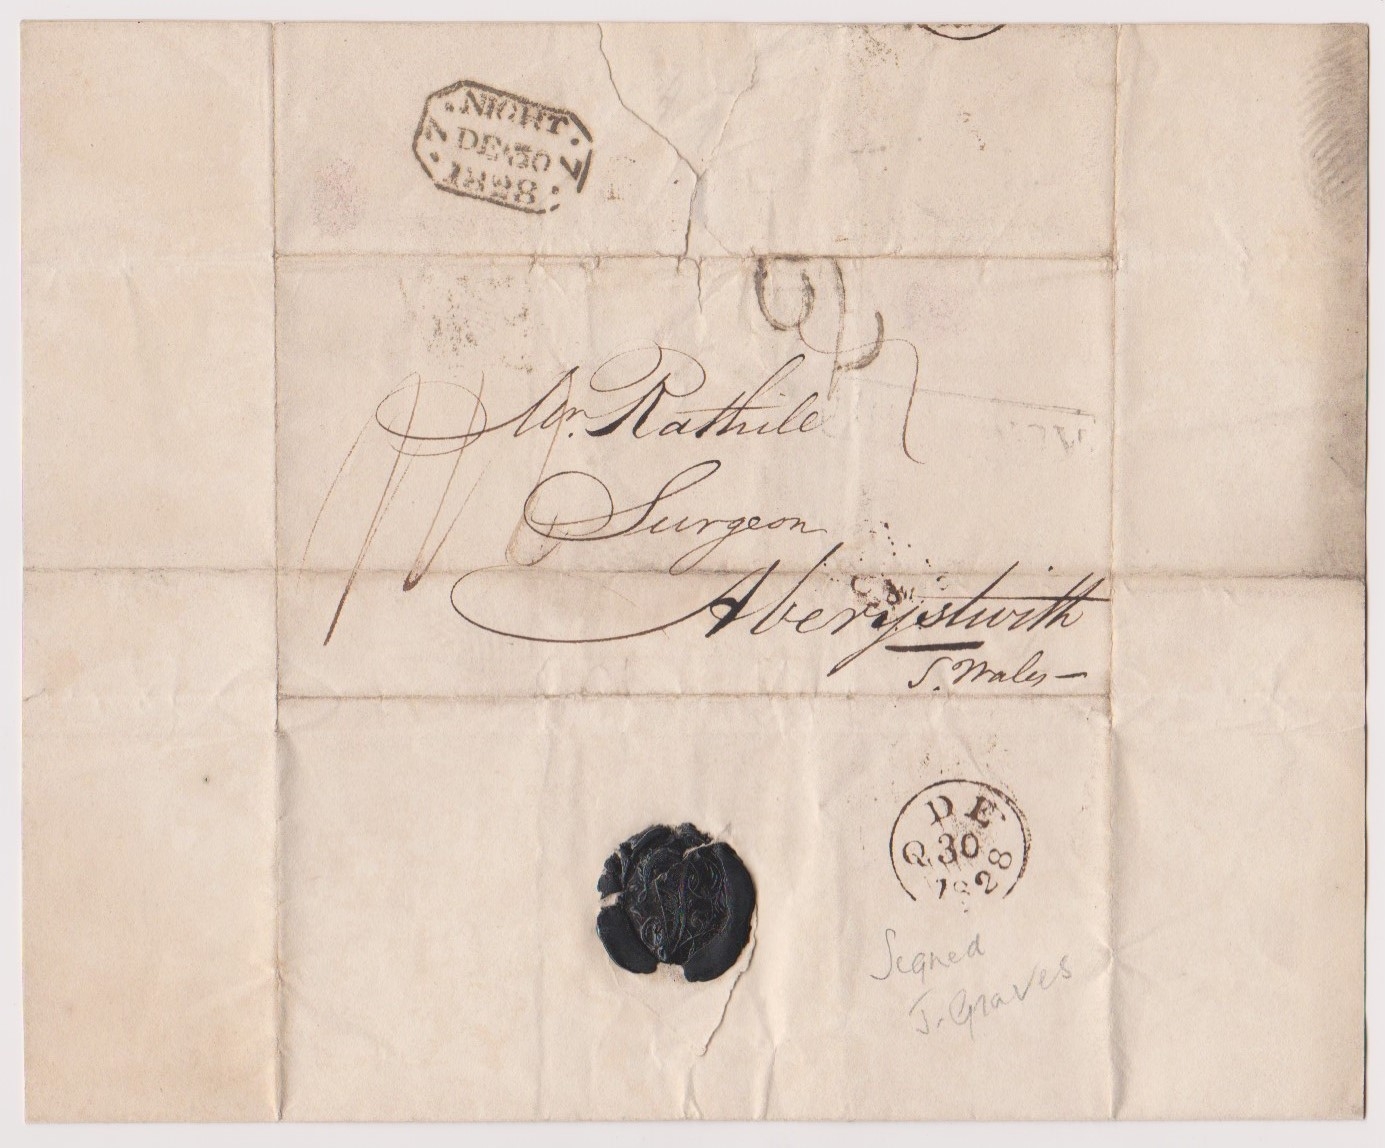 . NIGHT .
7 DE • 30 7
. 1828 .
Mr. Rathile
Surgeon
Aberystwith
S. Wales —
DE
Q 30
1828
Signed
J. Graves